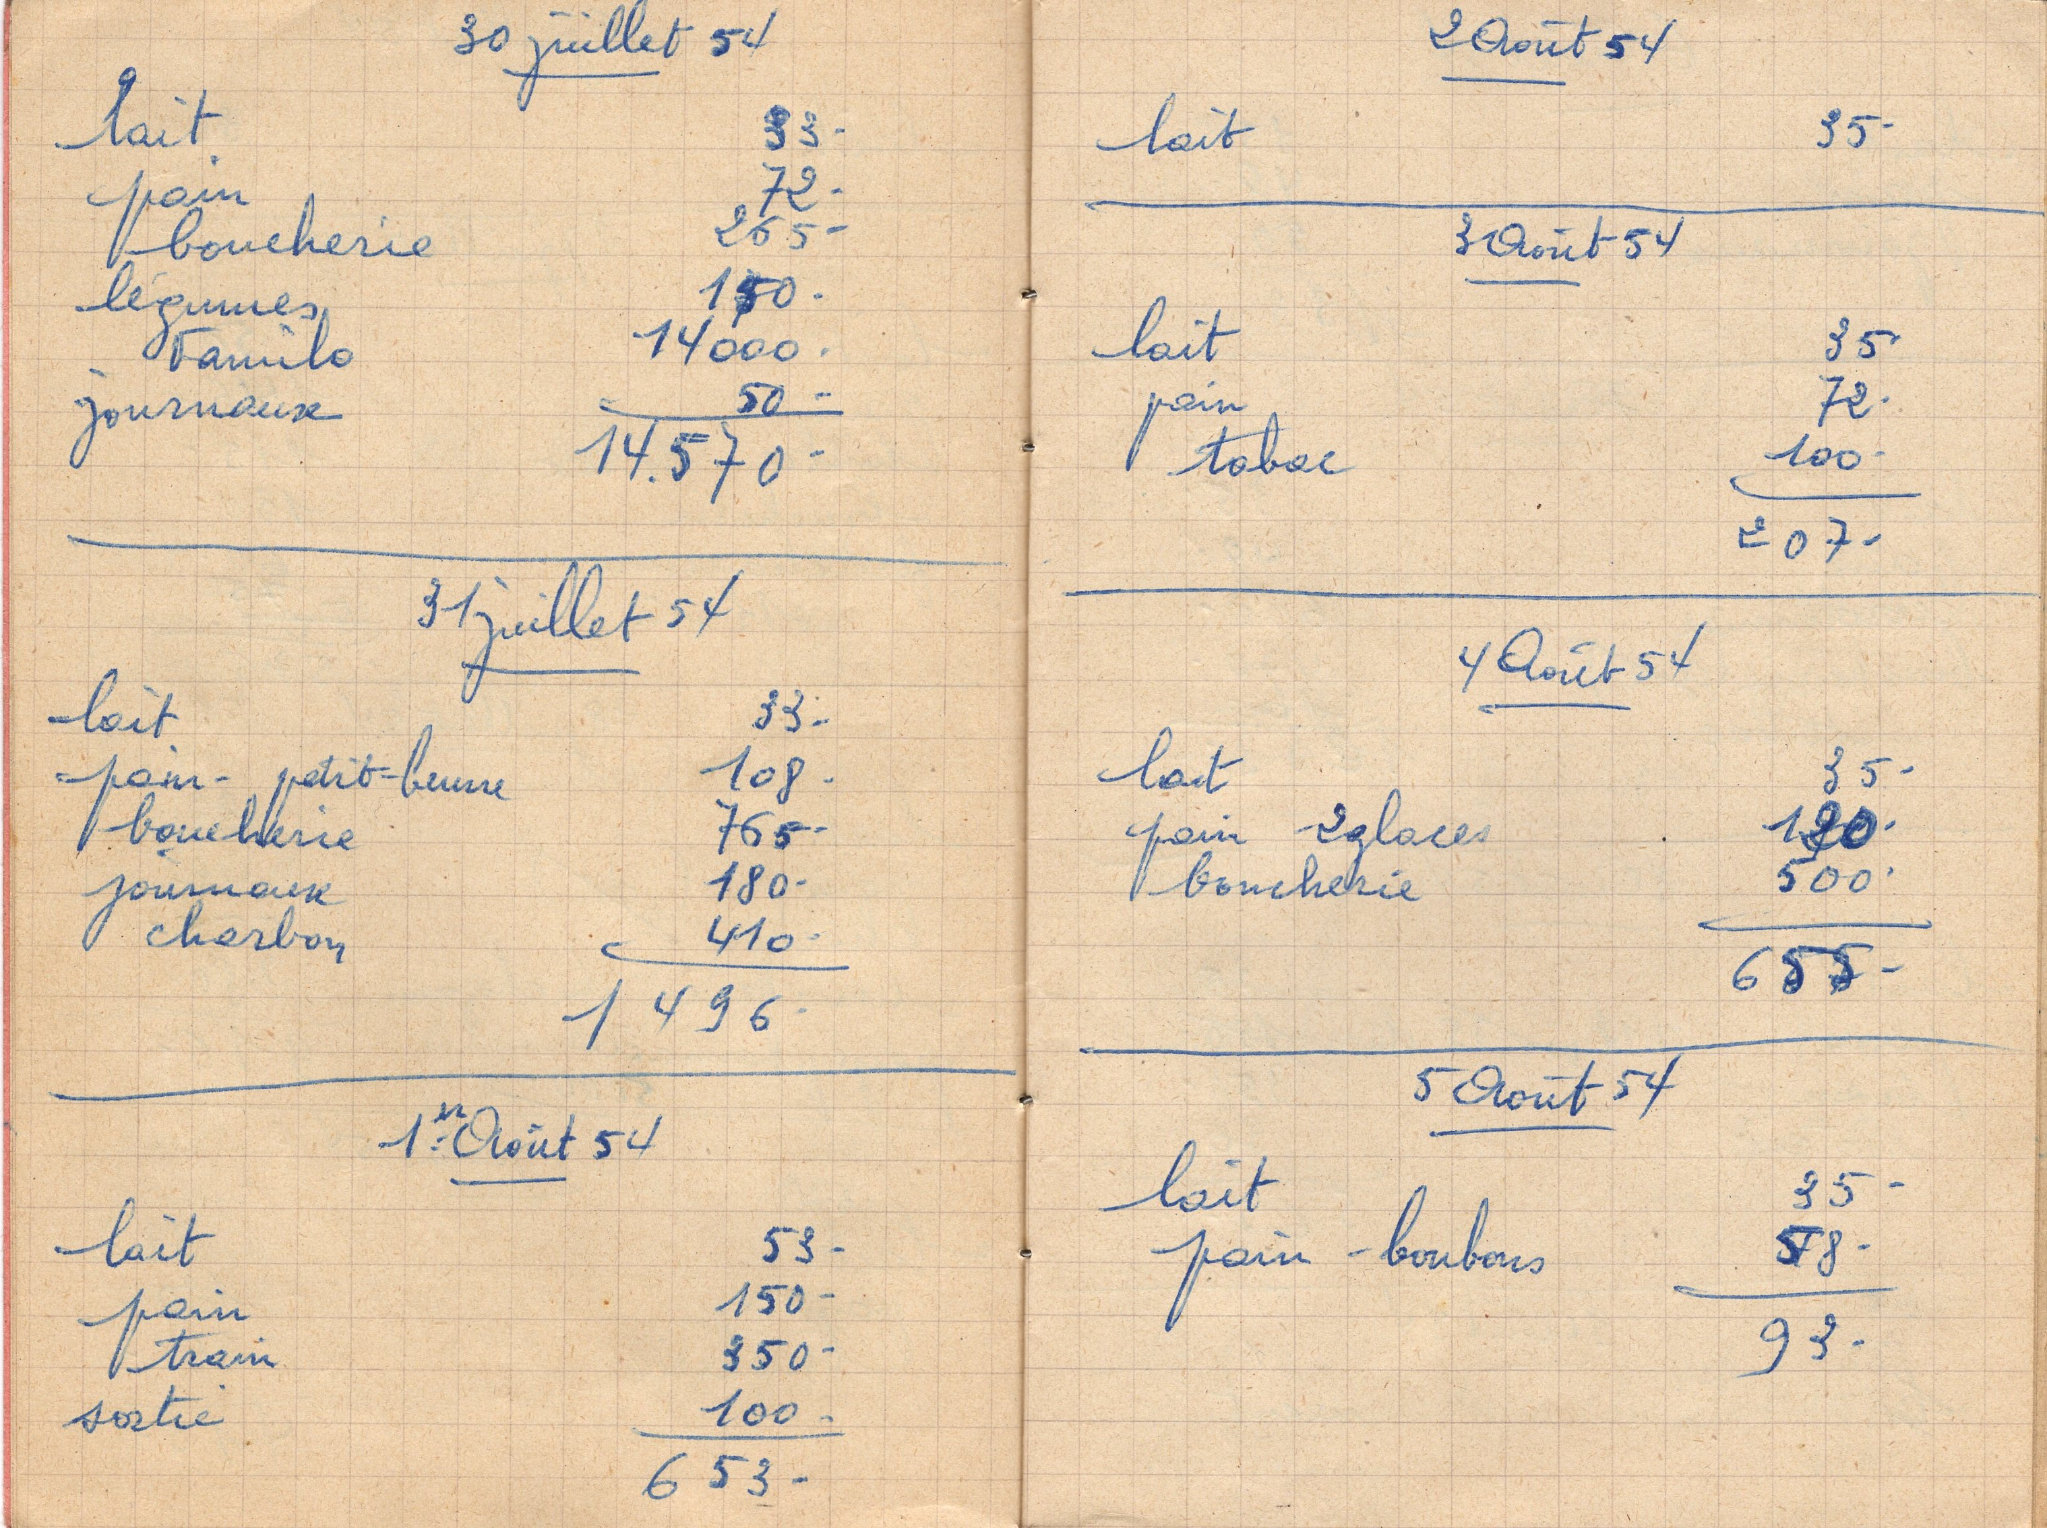 30 juillet 54
lait 33-
pain 72-
boucherie 265-
légumes 150-
Familo 14000-
journaux 50-
14.570-
31 juillet 54
lait 33-
pain - petit-beurre 108-
boucherie 765-
journaux 180-
charbon 410-
1496-
1er Août 54
lait 53-
pain 150-
train 350-
sortie 100-
653-
2 Août 54
lait 35-
3 Août 54
lait 35-
pain 72-
tabac 100-
207-
4 Août 54
lait 35-
pain 2 glaces 120-
boucherie 500-
655-
5 Août 54
lait 35-
pain - bonbons 58-
93-